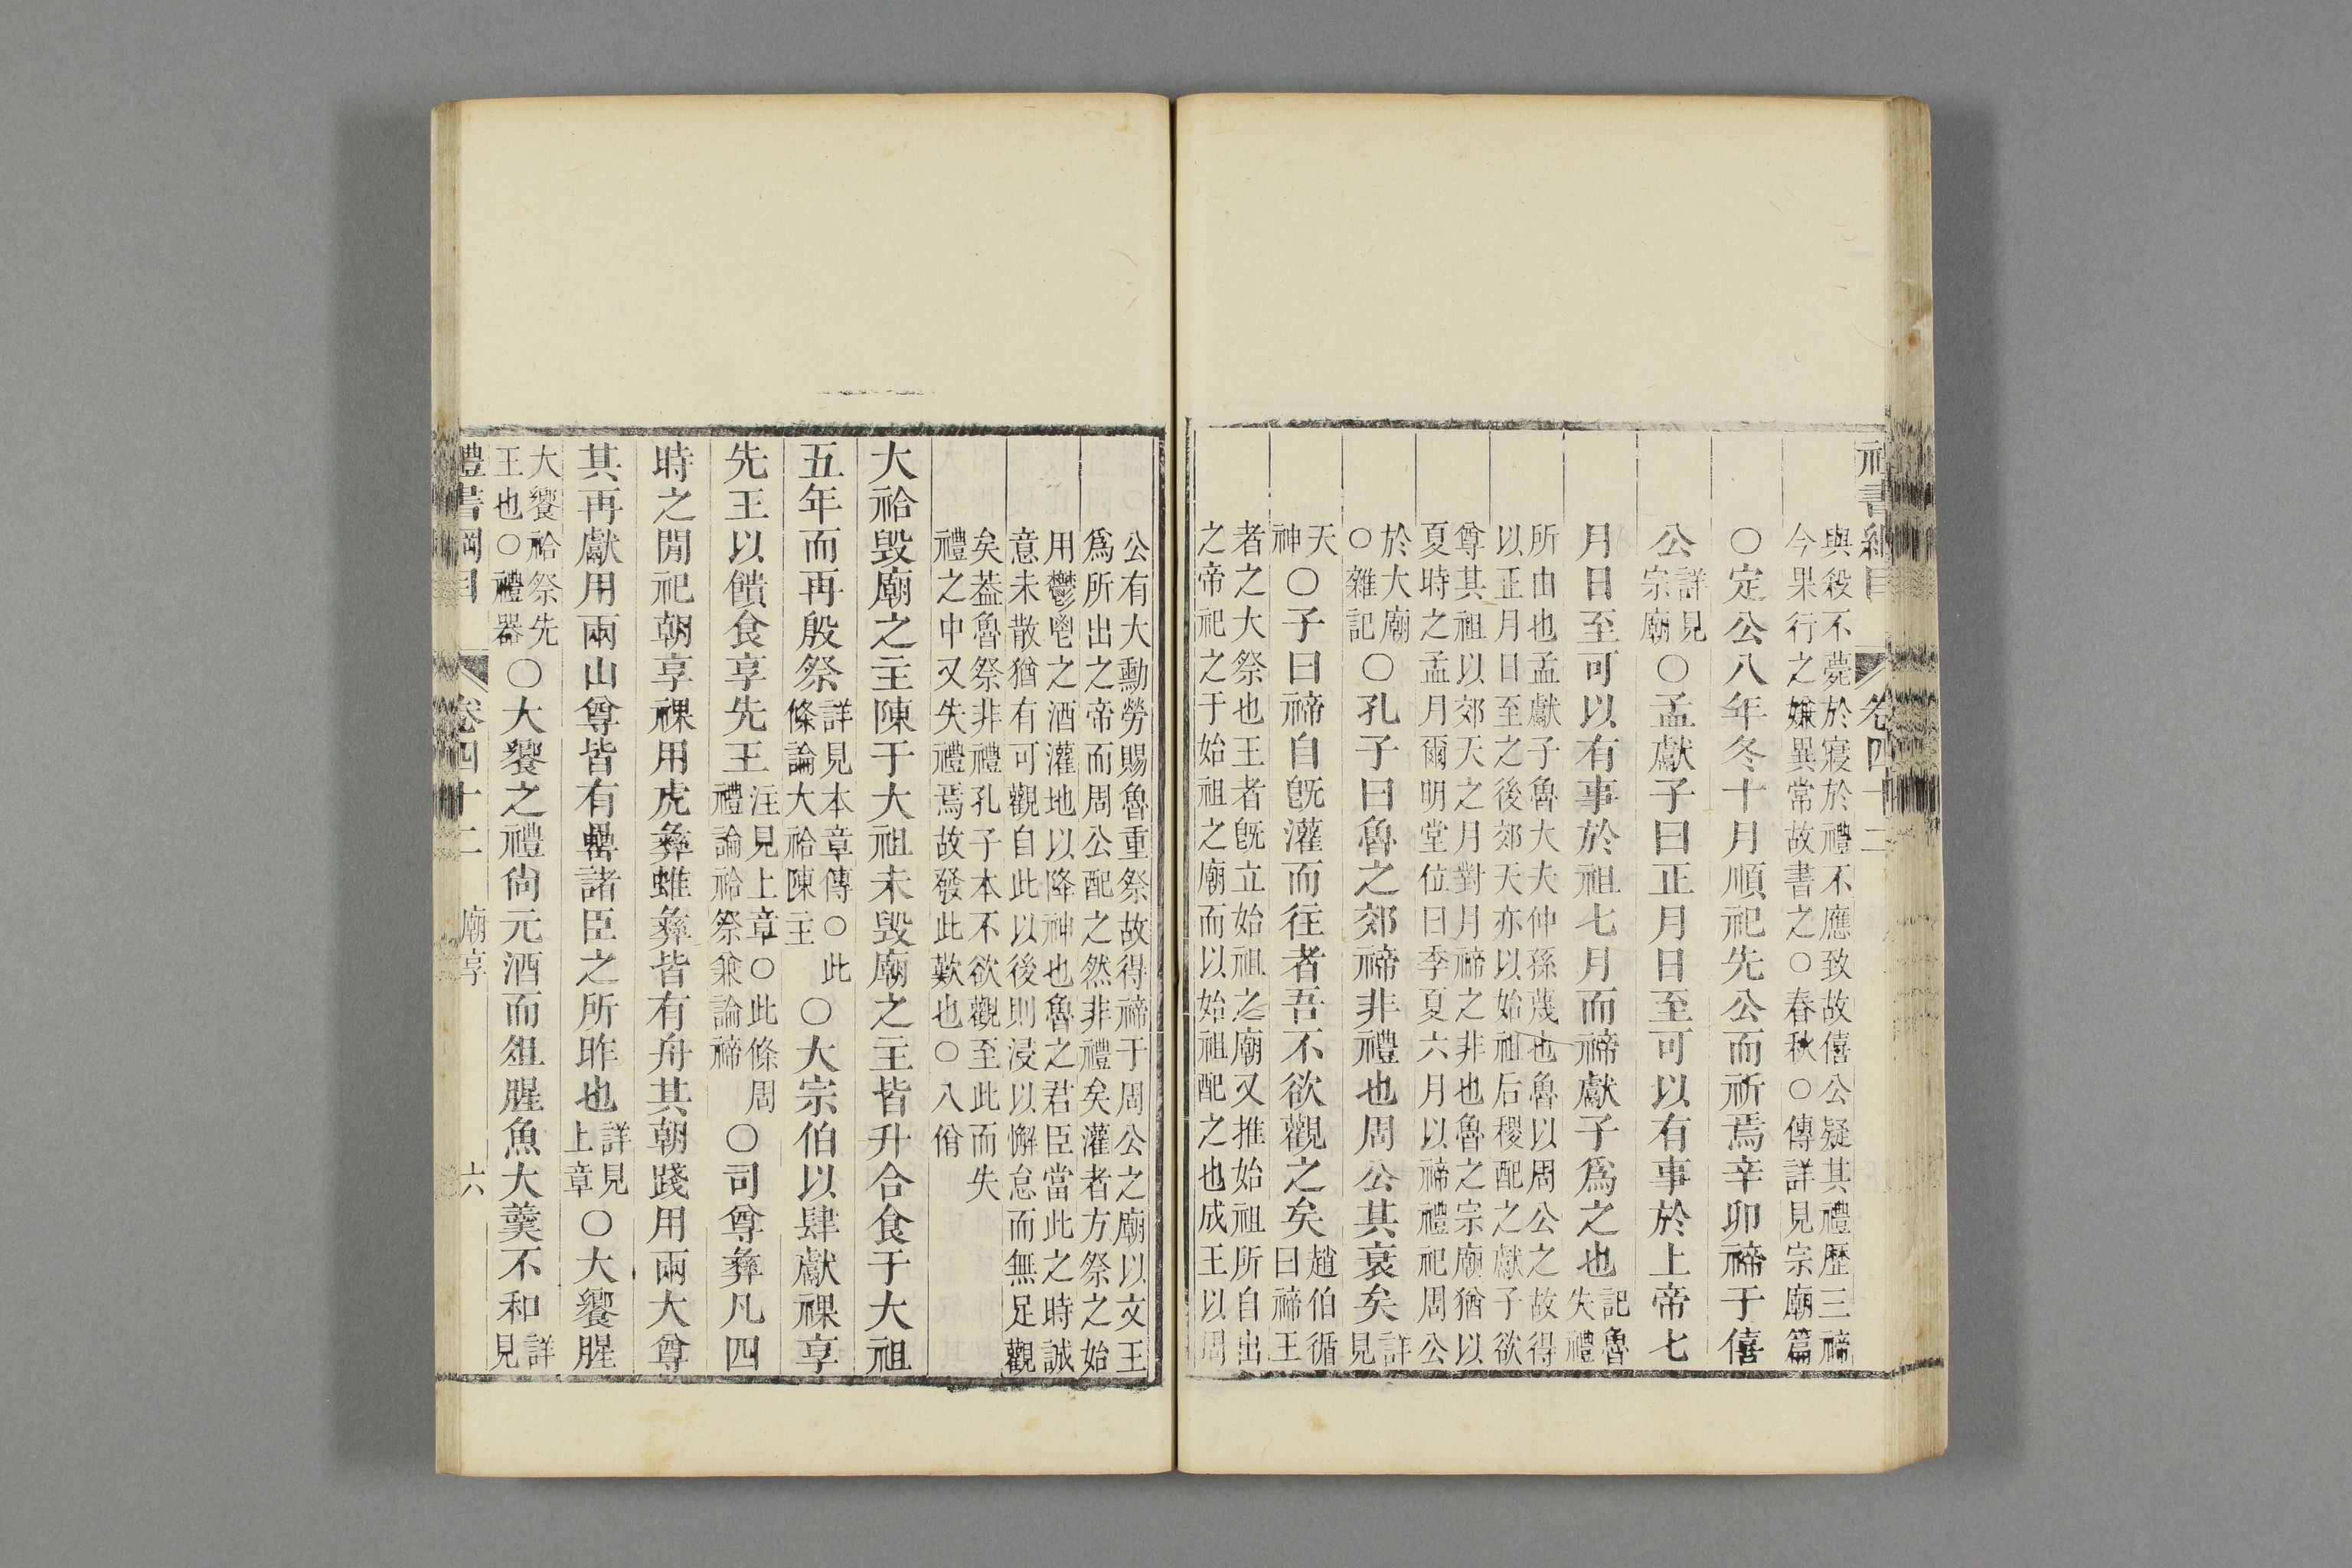 禮書綱目 卷四十二
與殺不薨於寢於禮不應致故僖公疑其禮歷三禘
今果行之嫌異常故書之○春秋○傳詳見宗廟篇
○定公八年冬十月順祀先公而祈焉辛卯禘于僖
公詳見宗廟○孟獻子曰正月日至可以有事於上帝七
月日至可以有事於祖七月而禘獻子爲之也記魯失禮
所由也孟獻子魯大夫仲孫蔑也魯以周公之故得
以正月日至之後郊天亦以始祖后稷配之獻子欲
尊其祖以郊天之月對月禘之非也魯之宗廟猶以
夏時之孟月爾明堂位曰季夏六月以禘禮祀周公
於大廟○雜記○孔子曰魯之郊禘非禮也周公其衰矣詳見
天神○子曰禘自旣灌而往者吾不欲觀之矣趙伯循曰禘王
者之大祭也王者旣立始祖之廟又推始祖所自出
之帝祀之于始祖之廟而以始祖配之也成王以周
公有大勳勞賜魯重祭故得禘于周公之廟以文王
爲所出之帝而周公配之然非禮矣灌者方祭之始
用鬱鬯之酒灌地以降神也魯之君臣當此之時誠
意未散猶有可觀自此以後則浸以懈怠而無足觀
矣葢魯祭非禮孔子本不欲觀至此而失
禮之中又失禮焉故發此歎也○八佾
大祫毀廟之主陳于大祖未毀廟之主皆升合食于大祖
五年而再殷祭詳見本章傳○此條論大祫陳主○大宗伯以肆獻祼享
先王以饋食享先王注見上章○此條周禮論祫祭兼論禘○司尊彝凡四
時之閒祀朝享祼用虎彝蜼彝皆有舟其朝踐用兩大尊
其再獻用兩山尊皆有罍諸臣之所昨也詳見上章○大饗腥
大饗祫祭先王也○禮器○大饗之禮尙元酒而俎腥魚大羹不和詳見
禮書綱目 卷四十二 廟享 六